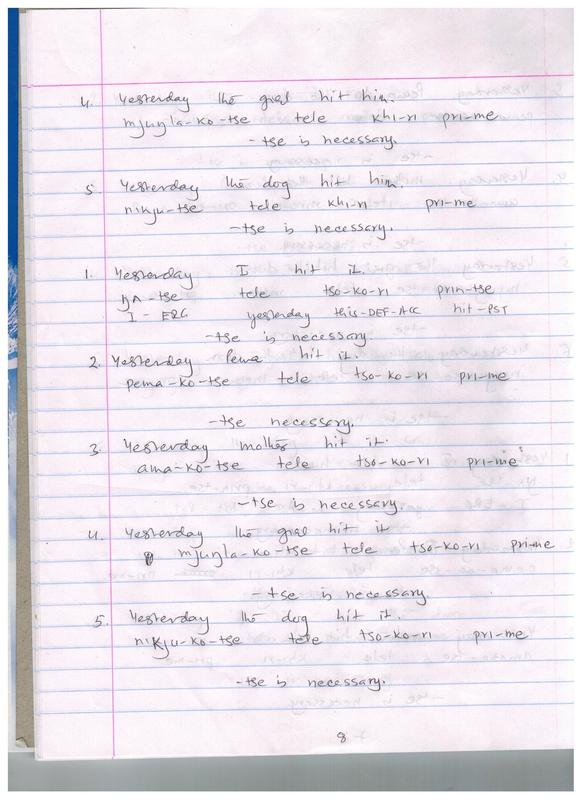 4. Yesterday the girl hit him.
mjuŋla-ko-tse tele khi-ri pri-me
-tse is necessary.
5. Yesterday the dog hit him.
nikju-tse tele khi-ri pri-me
-tse is necessary.
1. Yesterday I hit it.
ŋA-tse tele tso-ko-ri prin-tse
I - ERG yesterday this-DEF-ACC hit-PST
-tse is necessary
2. Yesterday Pema hit it.
pema-ko-tse tele tso-ko-ri pri-me
-tse necessary.
3. Yesterday mother hit it.
ama-ko-tse tele tso-ko-ri pri-me
-tse is necessary.
4. Yesterday the girl hit it
mjuŋla-ko-tse tele tso-ko-ri pri-me
-tse is necessary
5. Yesterday the dog hit it.
nikju-ko-tse tele tso-ko-ri pri-me
-tse is necessary.
8